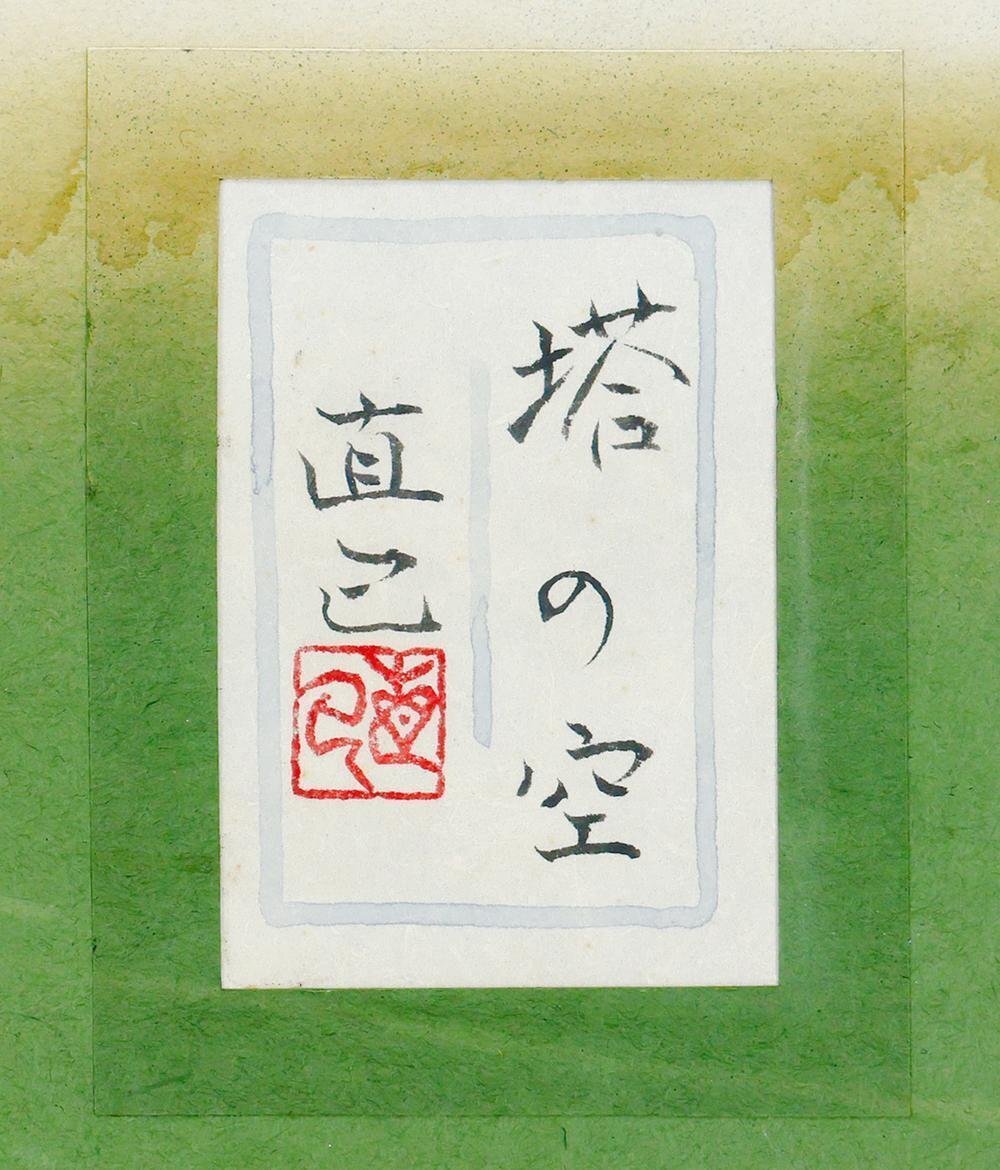 塔の空
直己